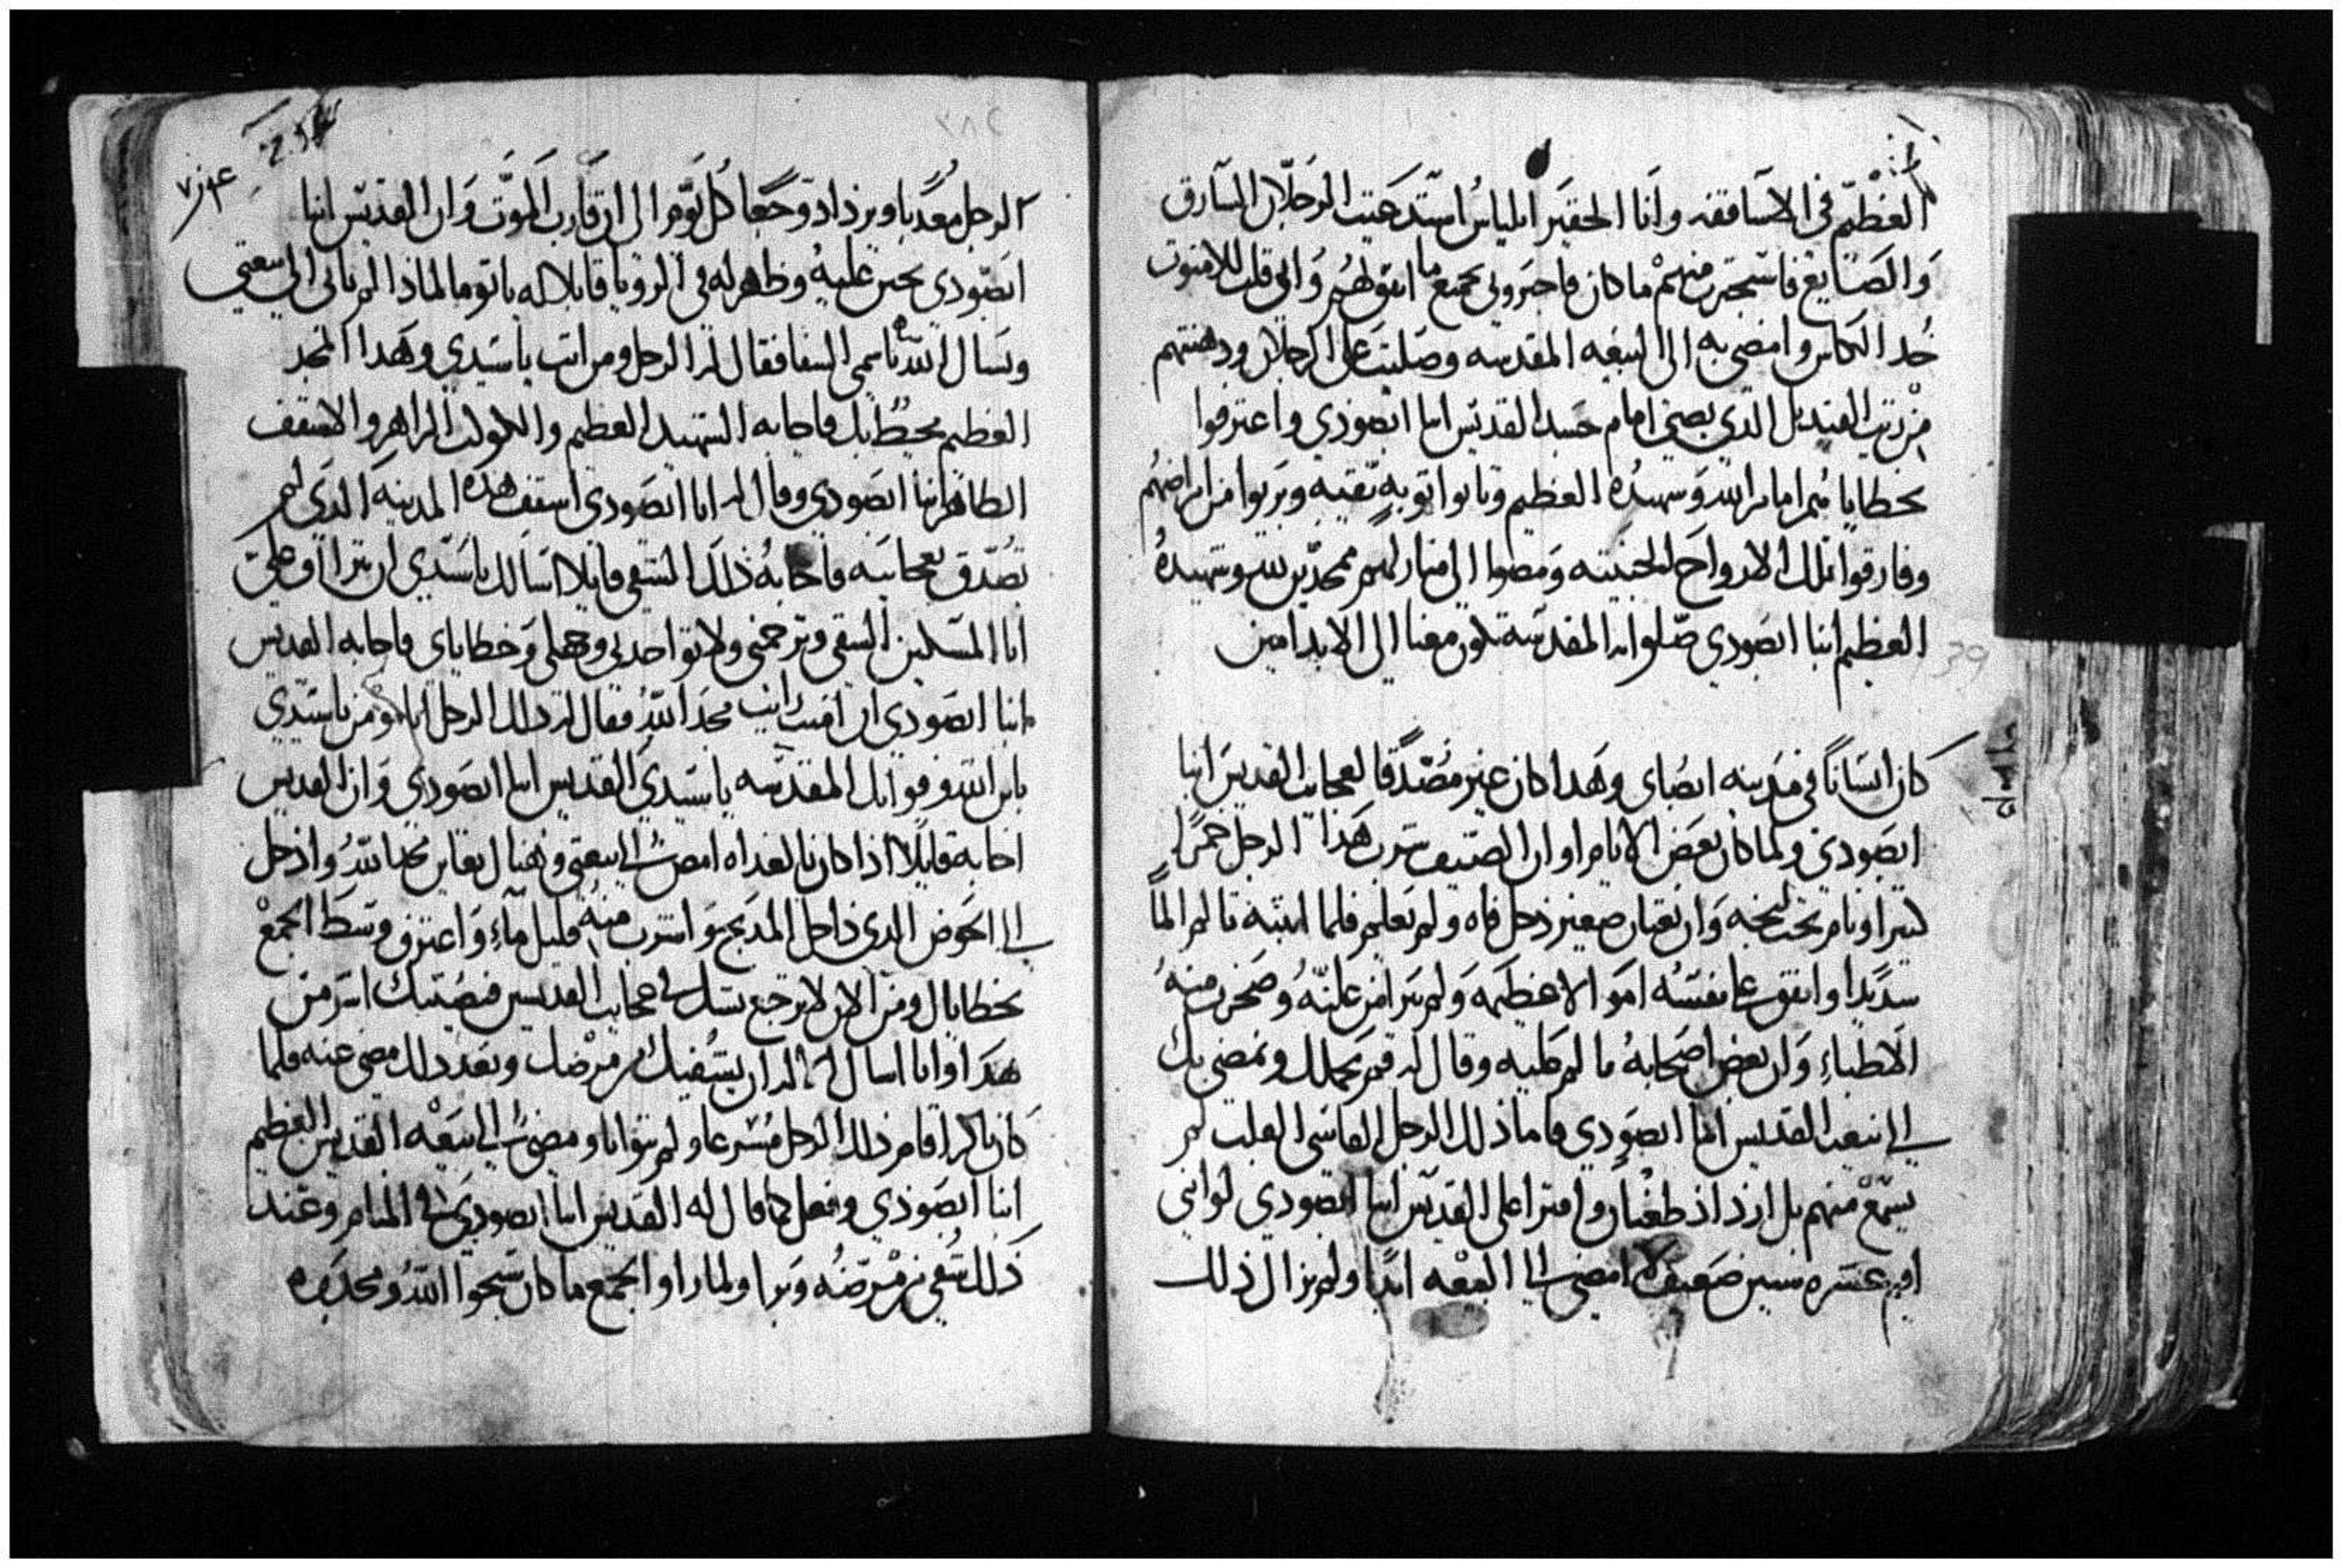 العظيم في الاساقفه وانا الحقير ايلياس استدعيت الرجلان السارق
والصايغ فاستخبرت منهم ما كان فاخبروني بجميع ما اتفق لهم واني قلت للامنوت
خد الكاس وامضي به الى البيعه المقدسه وصليت على الرجلان ودهنتهم
من زيت القنديل الذي يضي امام جسد القديس انبا ابصودي واعترفوا
بخطاياهم امام الله وشهيده العظيم وتابوا توبه نقيه وبريوا من امراضهم
وفارقوا تلك الارواح الخبيثه ومضوا الى منازلهم ممجدين لله وشهيده
العظيم انبا ابصودي صلواته المقدسه تكون معنا الى الابد امين
كان انسانا في مدينه ابصاي وهدا كان غير مصدقا لعجايب القديس انبا
ابصودي ولما كان بعض الايام اوان الصيف شرب هذا الرجل خمرا
كثيرا ونام تحت نخله وان تعبان صغير دخل فاه ولم يعلم فلما انتبه تالم الما
شديدا وانفق على نفسه اموالا عظيمه ولم يبرا من علته وضجرت منه
الاطباء وان بعض اصحابه تالم عليه وقال له قم نحملك ونمضي بك
الى بيعة القديس انبا ابصودي فاما ذلك الرجل القاسي القلب لم
يسمع منهم بل ازداد طغيان وافترا على القديس انبا ابصودي لو انني
اقيم عشره سنين ضعيف لا امضي الى البيعه ابدا ولم يزال ذلك
الرجل معدبا ويزداد وجعا كل يوم الى ان قارب الموت وان القديس انبا
ابصودي تحنن عليه وظهر له في الرويا قايلا له يا توما لماذا لم تاتي الى بيعتي
وتسال الله باسمي الشفا فقال له الرجل ومن انت يا سيدي وهدا المجد
العظيم محيط بك فاجابه الشهيد العظيم والكوكب الزاهر والاسقف
الطاهر انبا ابصودي وقال له انا ابصودي اسقف هده المدينه الذي لم
تصدق بعجايبه فاجابه ذلك الشقي قايلا اسالك يا سيدي ان تتراف علي
انا المسكين الشقي وترحمني ولا تواخدني وجهلي وخطاياي فاجابه القديس
انبا ابصودي ان امنت رايت مجد الله فقال له ذلك الرجل انا اومن يا سيدي
بابن الله وقواتك المقدسه يا سيدي القديس انبا ابصودي وان القديس
اجابه قايلا اذا كان بالغداه امضي الى بيعتي وهناك تعاين مجد الله وادخل
الى الحوض الدي داخل المدبح واشرب منه قليل ماء واعترف وسط الجمع
بخطاياك ومن الان لا ترجع تشك في عجايب القديسين فيصيبك اشر من
هدا وانا اسال الله ان يشفيك من مرضك وبعد دلك مضى عنه فلما
كان باكرا قام ذلك الرجل مسرعا ولم يتوانا ومضى الى البيعه القديس العظيم
انبا ابصودي وفعل كما قال له القديس انبا ابصودي في المنام وعند
ذلك شفي من مرضه وبرا ولما راوا الجمع ما كان سبحوا الله ومجدوه